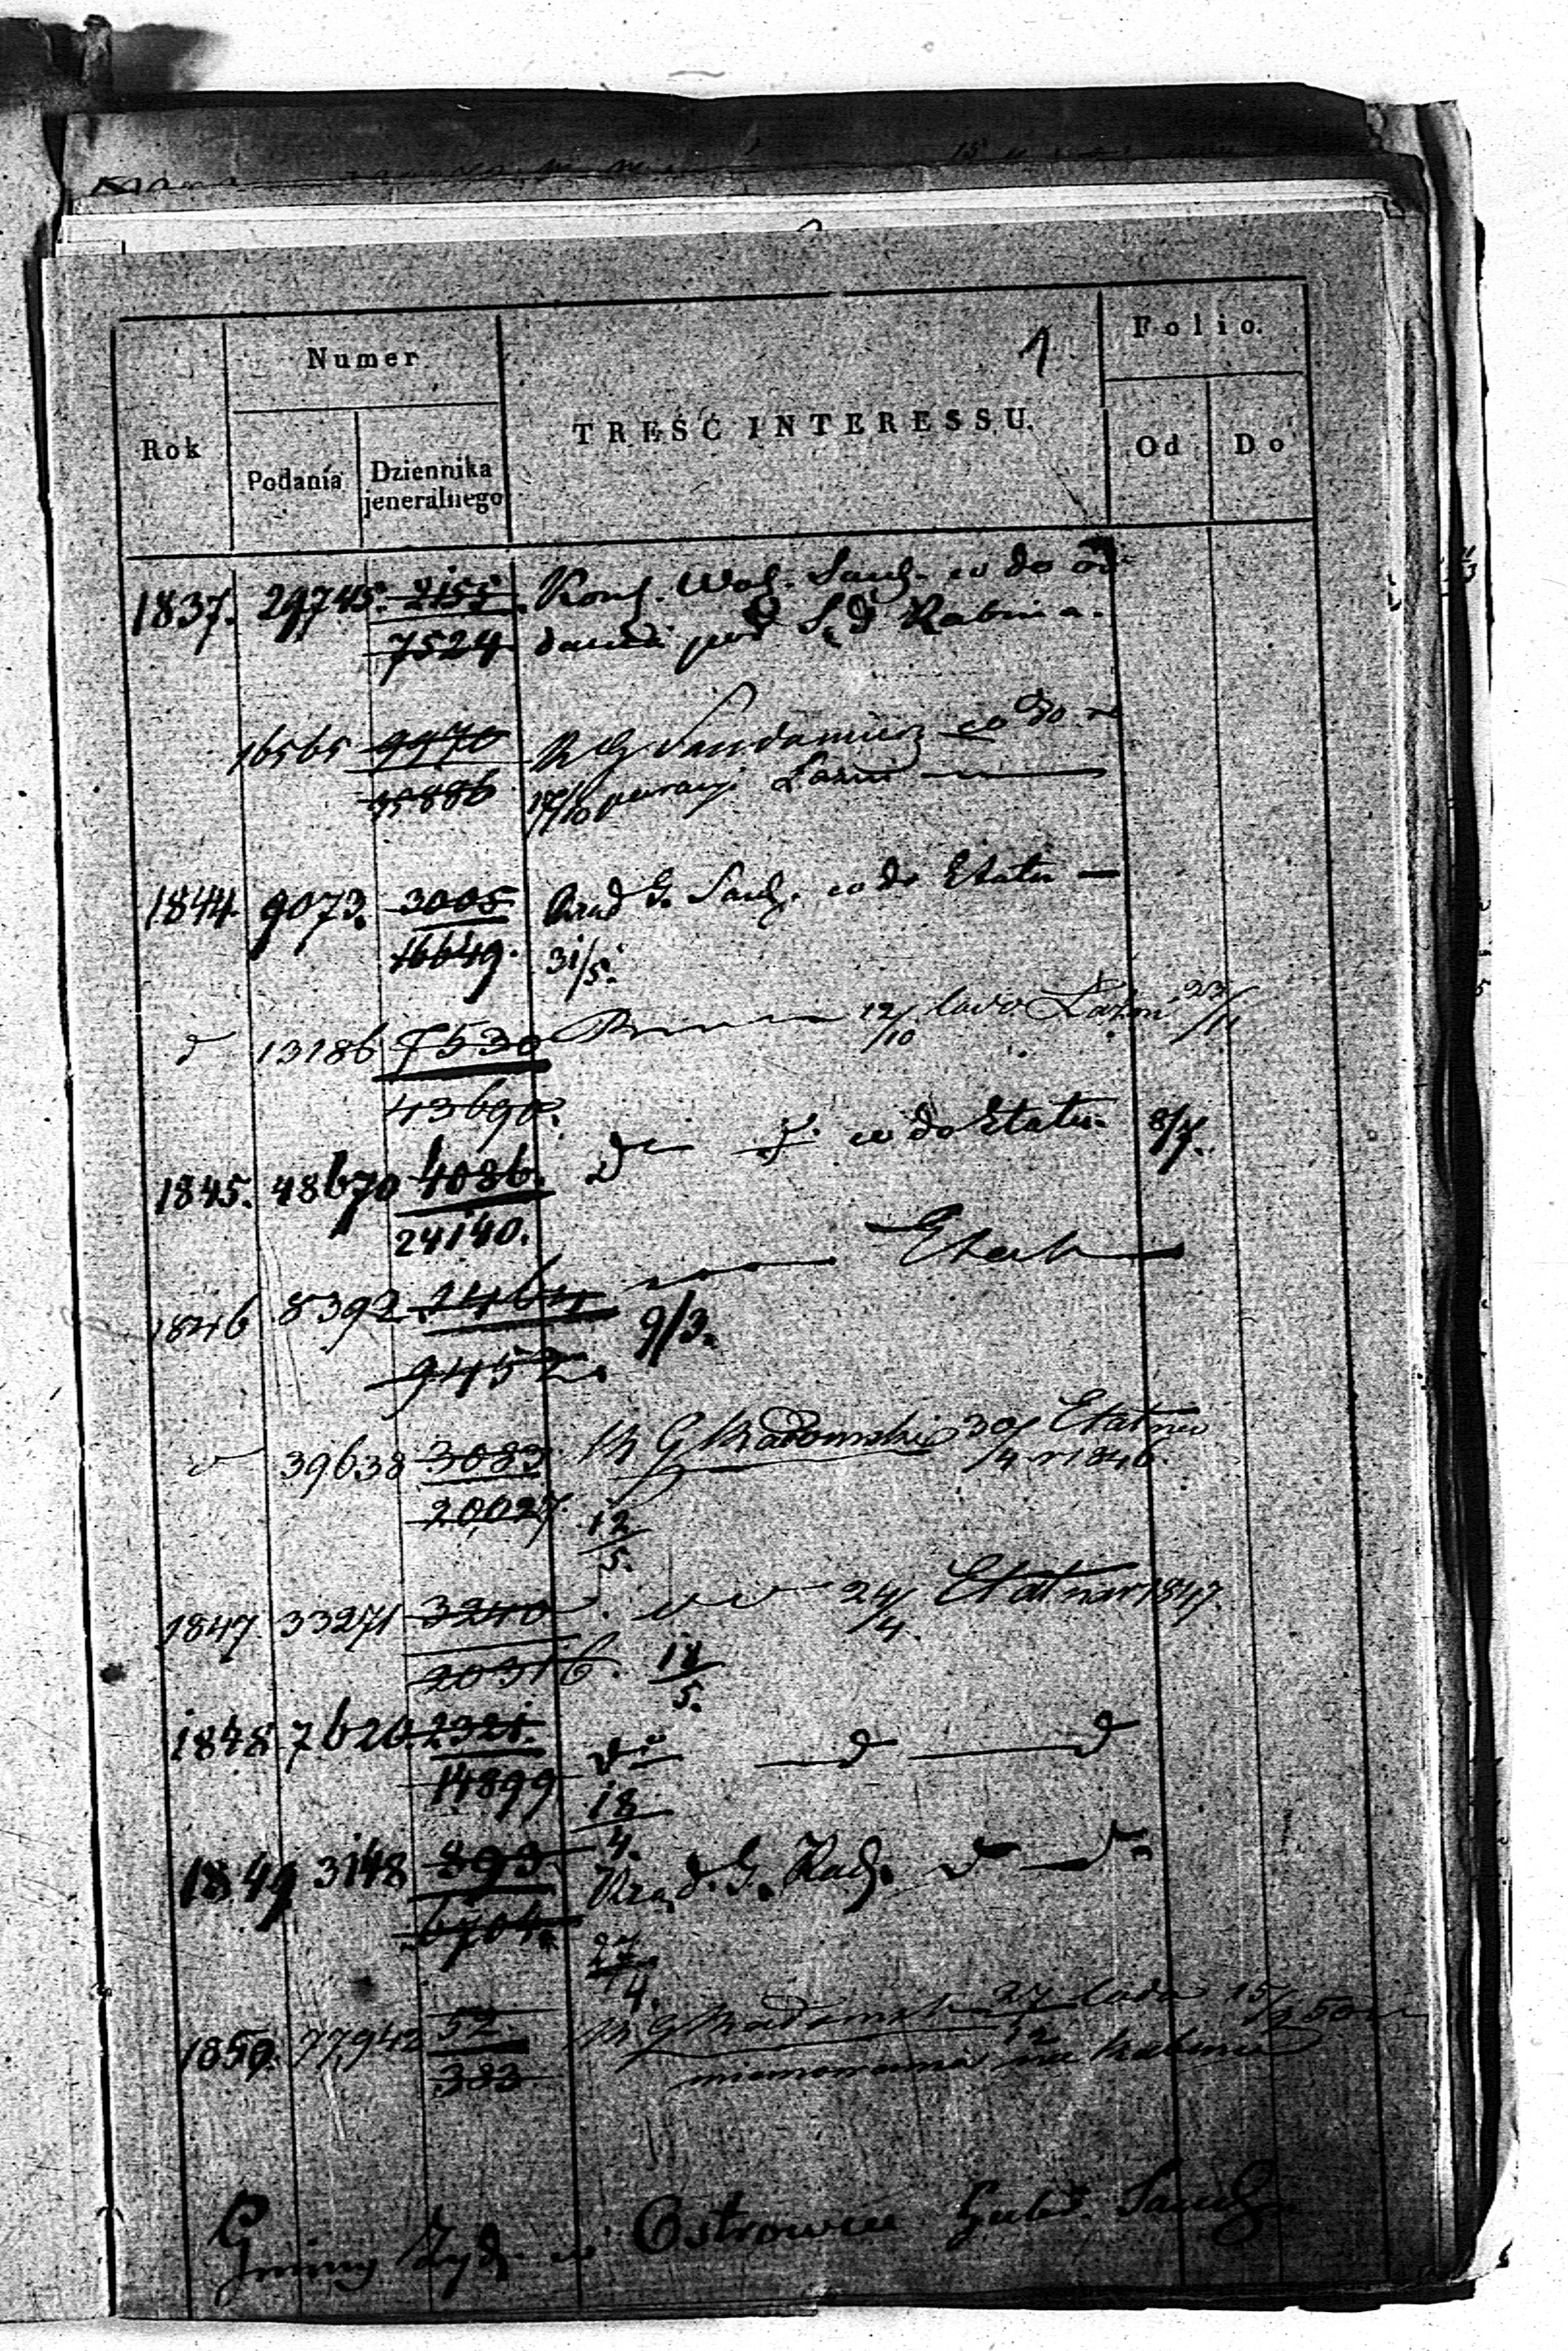 1
Rok
Numer
Podania
Dziennika jeneralnego
TREŚĆ INTERESSU.
Folio.
Od
Do
1837. 29745. 2155 Kom. Woj. Sand. co do od
7524 dania pod Sąd Rabina.
16565 9970 R G Sandomierz co do
35886 17/10 Łaźni
1844. 9073. 3005 Rząd G. Sand. co do Etatu —
16649. 31/5.
d 13186 7530 12/10 Łaźni 23/11
43690.
1845. 48670 4086. do co do Etatu. 8/7.
24140.
1846 8392 1464 Etat
9452. 9/3.
39638 3083 R G Radomski 30/4 Etat na r 1846.
20027 12/5.
1847 33271 3240 24/4. Etat na r 1847.
20316. 18/5.
1848 7620 2321. do d d
14899 18/4.
1849 3148 893 Rząd. G. Rad. d d
6704. 27/4.
1850. 77942 52. R G Radomski 27/12 15/1 50
383 mianowania na Rabina
Gminy Żyd. w Ostrowcu Gub. Sand.